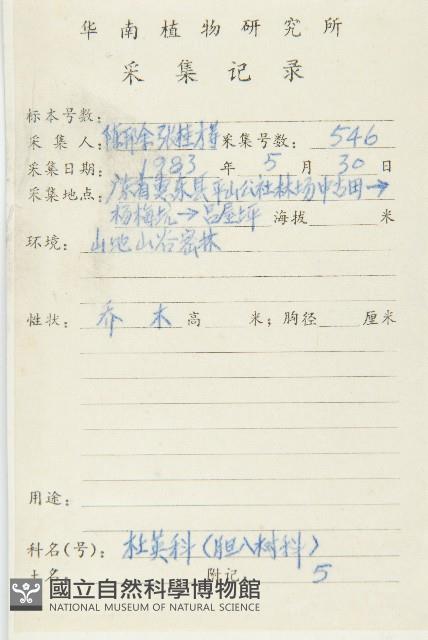 华南植物研究所
采集记录
标本号数:
采集人: 张桂才 采集号数: 546
采集日期: 1983 年 5 月 30 日
采集地点: 广东省惠东县平山公社林场中古田→
杨梅坑→吕屋坪 海拔 米
环境: 山地山谷密林
性状: 乔木 高 米; 胸径 厘米
用途:
科名(号): 杜英科(胆八树科)
土名: 附记: 5
國立自然科學博物館
NATIONAL MUSEUM OF NATURAL SCIENCE